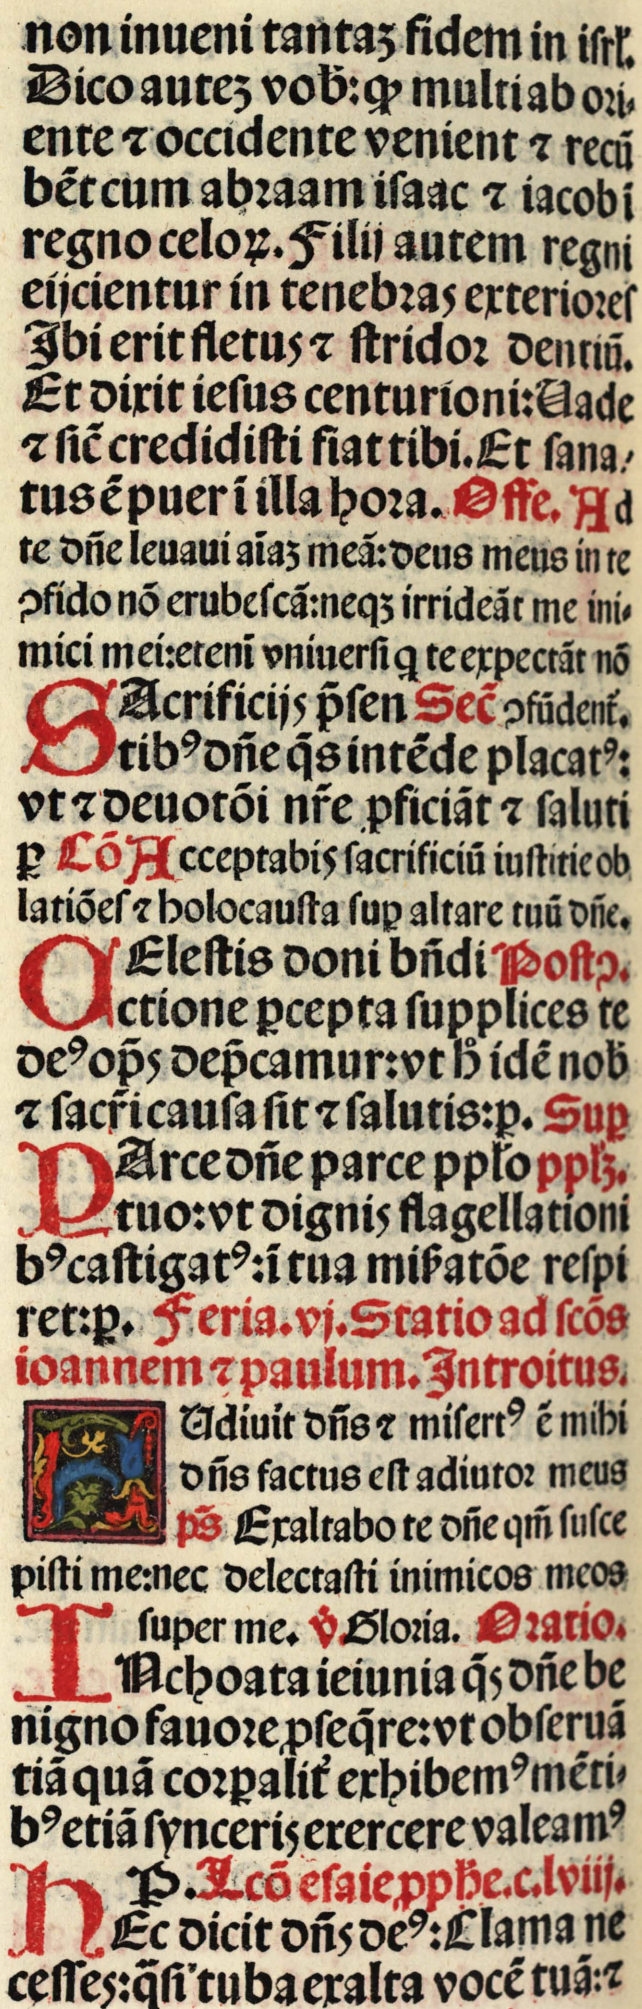 non inueni tantaʒ fidem in isrl̓.
Dico auteʒ vob̓: qꝫ multi ab ori⸗
ente ⁊ occidente venient ⁊ recū
bēt cum abraam isaac ⁊ iacob i
regno celoꝝ. Filij autem regni
eijcientur in tenebras exteriores
Ibi erit fletus ⁊ stridor dentiū.
Et dixit iesus centurioni: Uade
⁊ sic̄ credidisti fiat tibi. Et sana⸗
tus ē puer ī illa hora. Offe. Ad
te dn̄e leuaui aīaʒ meā: deus meus in te
ↄfido nō erubescā: neqꝫ irrideāt me ini⸗
mici mei: eteni vniuersi q̄ te expectāt nō
SAcrificijs p̄sen Sec̄ ↄfūdent̄.
tibꝰ dn̄e q̄s intēde placatꝰ:
vt ⁊ deuotōi nr̄e ꝓficiāt ⁊ saluti
ꝑ Cō Acceptabis sacrificiū iustitie ob
latiōes ⁊ holocausta suꝑ altare tuū dn̄e.
CElestis doni bn̄di Postↄ.
ctione ꝑcepta supplices te
deꝰ op̄s dep̄camur: vt h̓ idē nob̓
⁊ sacr̄i causa sit ⁊ salutis: ꝑ. Suꝑ
PArce dn̄e parce ppl̓o ppl̓ʒ.
tuo: vt dignis flagellationi
bꝰ castigatꝰ: ī tua mis̓atōe respi
ret: ꝑ. Feria. vj. Statio ad scōs
ioannem ⁊ paulum. Introitus.
AUdiuit dn̄s ⁊ misertꝰ ē mihi
dn̄s factus est adiutor meus
ps̄ Exaltabo te dn̄e qm̄ susce
pisti me: nec delectasti inimicos meos
super me. ℣. Gloria. Oratio.
INchoata ieiunia q̄s dn̄e be
nigno fauore ꝓseq̄re: vt obseruā
tiā quā corꝑalit̓ exhibemꝰ mēti⸗
bꝰ etiā synceris exercere valeamꝰ
P. Lcō esaie ꝓph̓e. c. lviij.
HEc dicit dn̄s deꝰ: Clama ne
cesses: q̄si tuba exalta vocē tuā: ⁊